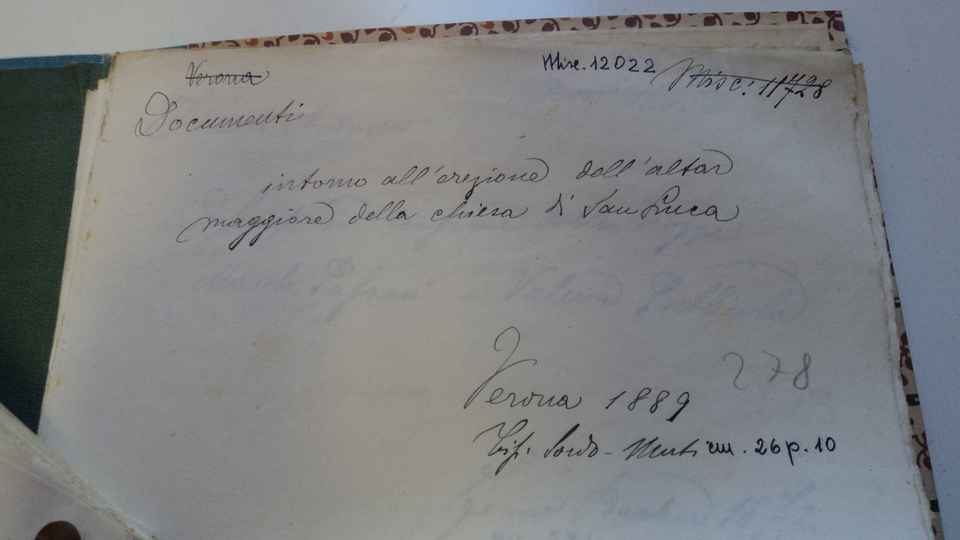 Verona
Misc. 12022
Misc: 11
Documenti
intorno all'erezione dell'altar
maggiore della chiesa di San Luca
Verona 1889
278
Tip. Sordo-Muti cm. 26 p. 10